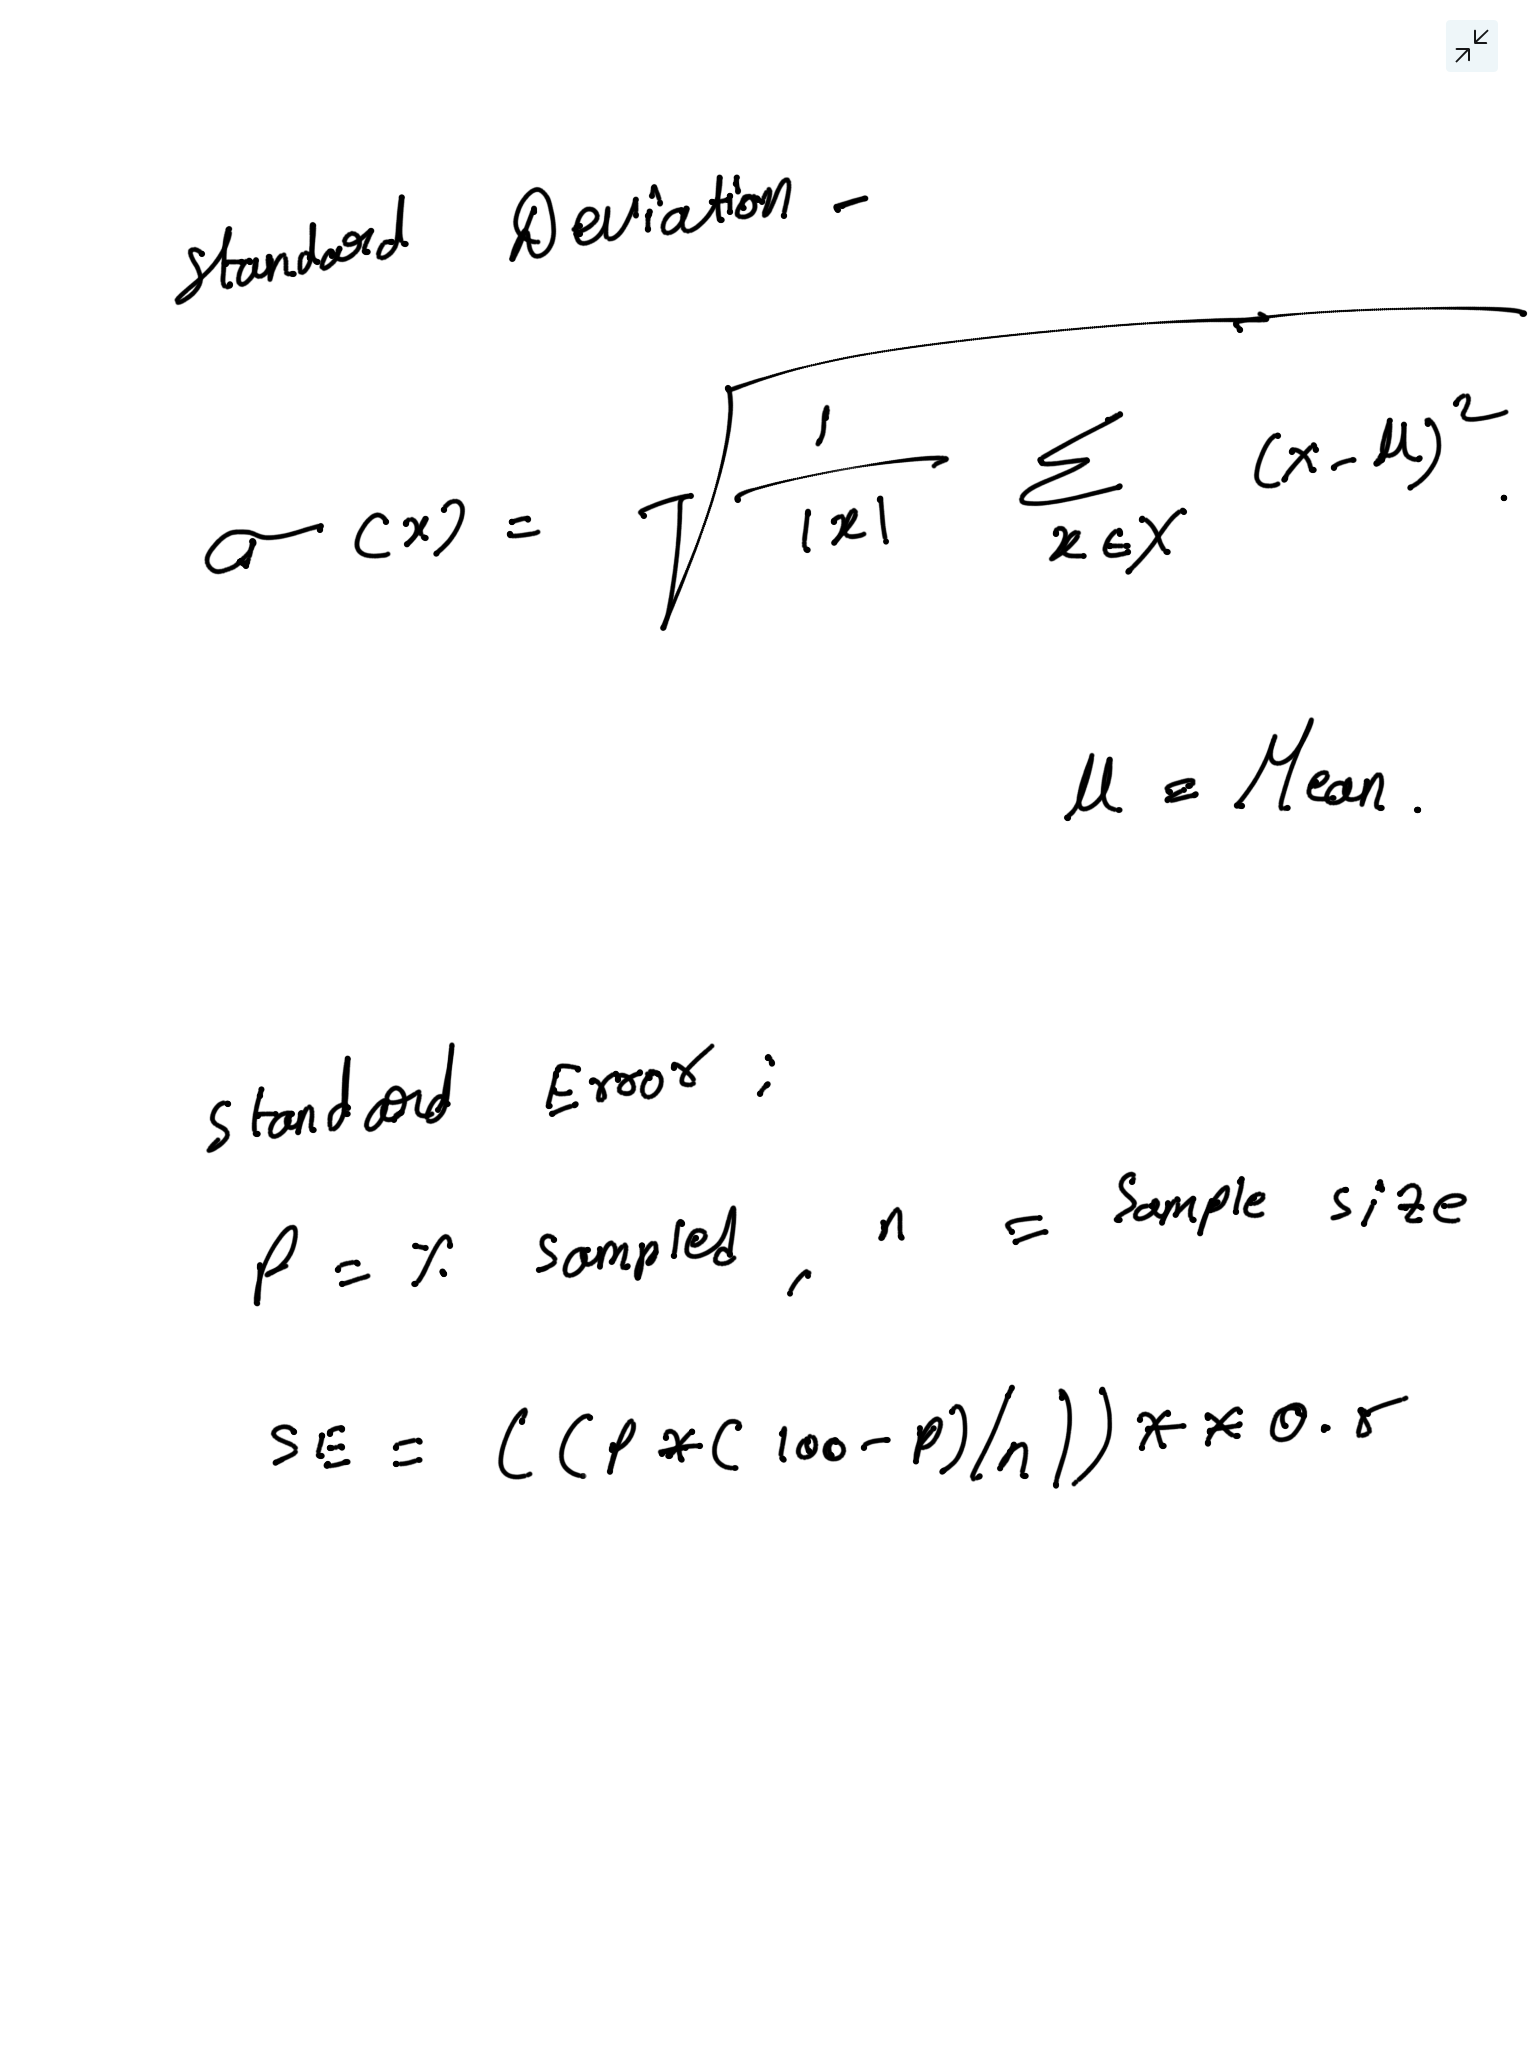 Standard Deviation -
σ(x) = √ 1/|x| Σ x∈X (x-μ)².
μ = Mean.
Standard Error :
P = % Sampled, n = Sample size
SE = ((P*(100-P)/n))**0.5